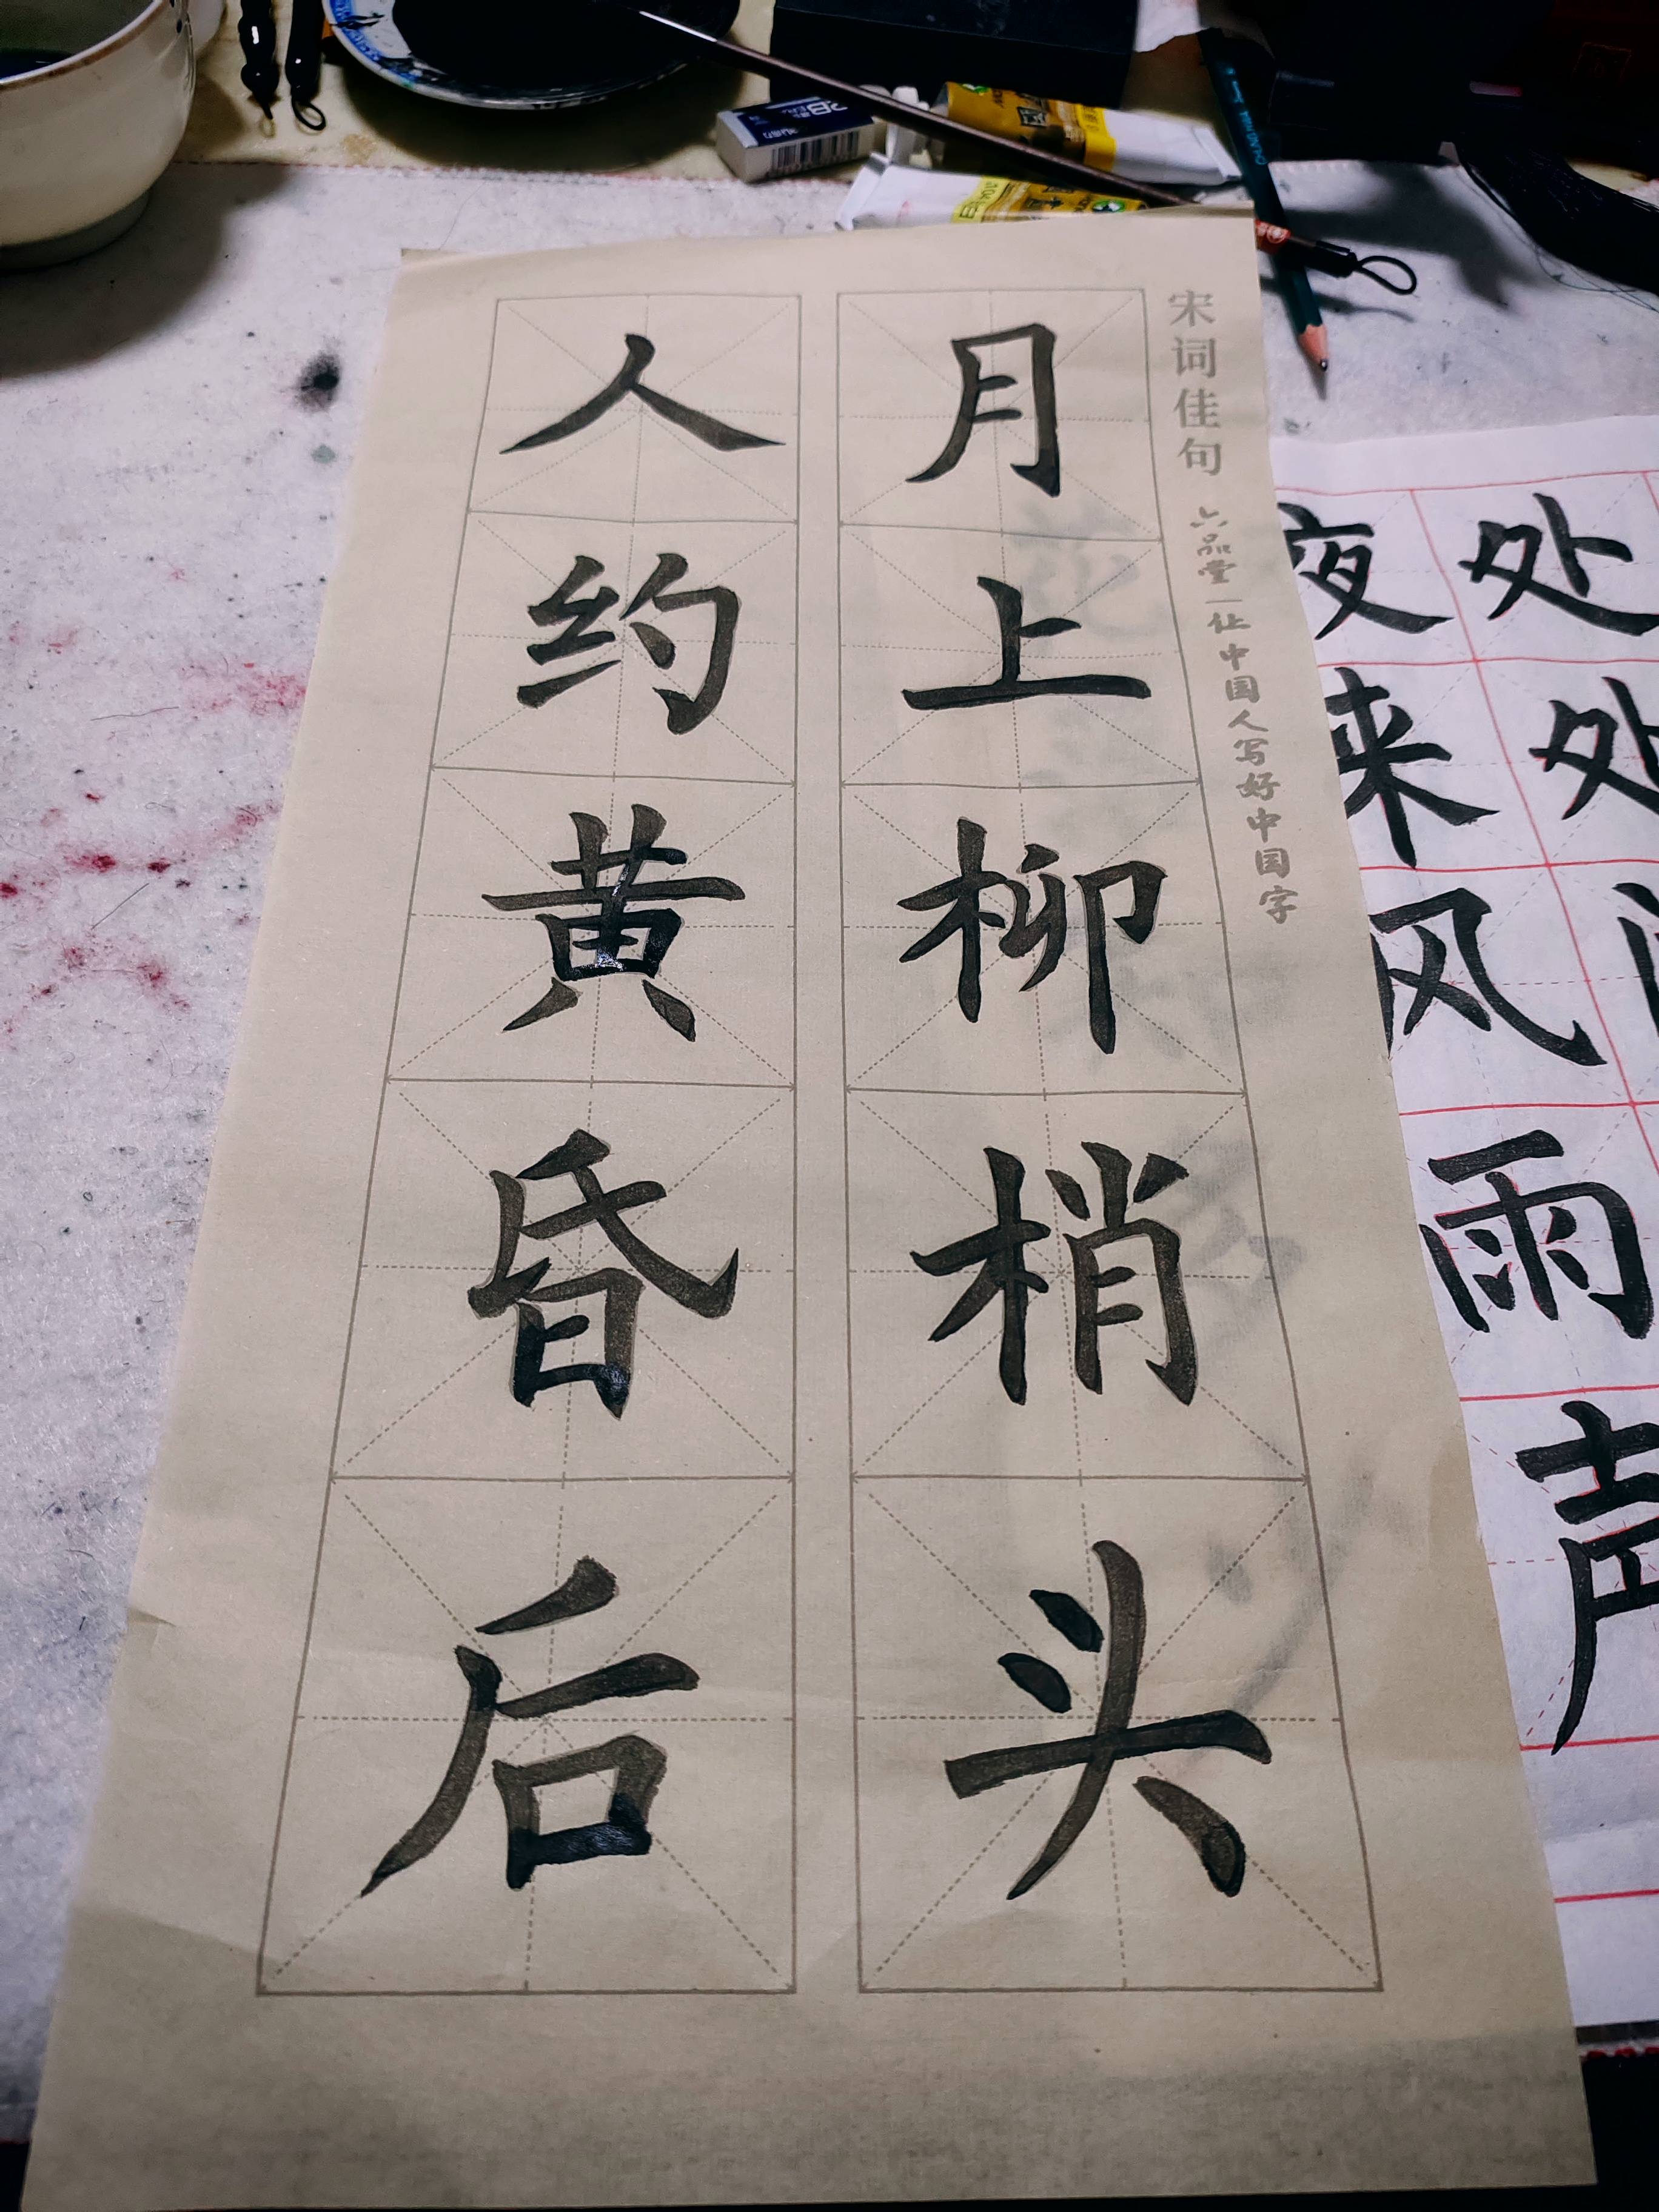 宋词佳句 六品堂—让中国人写好中国字
月上柳梢头
人约黄昏后
处处
夜来风雨声
2B
CHUNGHWA